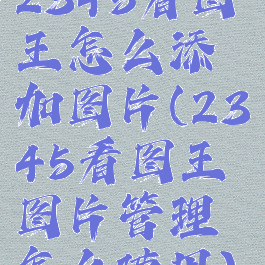 2345看图
王怎么添
加图片(23
45看图王
图片管理
怎么使用)